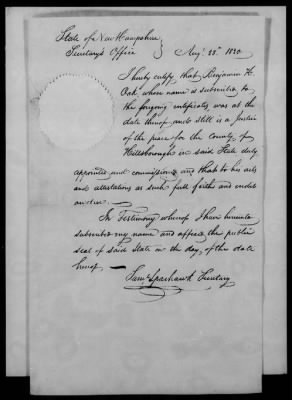 State of New Hampshire
Secretary's Office } Augt 23d 1820
I hereby certify, that Benjamin H.
Oak, whose name is subscribed to
the forgoing certificates, was at the
date thereof, and still is a justice
of the peace for the county of
Hillsborough in said State duly
appointed and commissioned and that to his acts
and attestations as such full faith and credit
are due.
In Testimony whereof I have hereunto
subscribed my name and affixed the public
seal of said State on the day, of the date
hereof. —
Saml Sparhawk Secretary